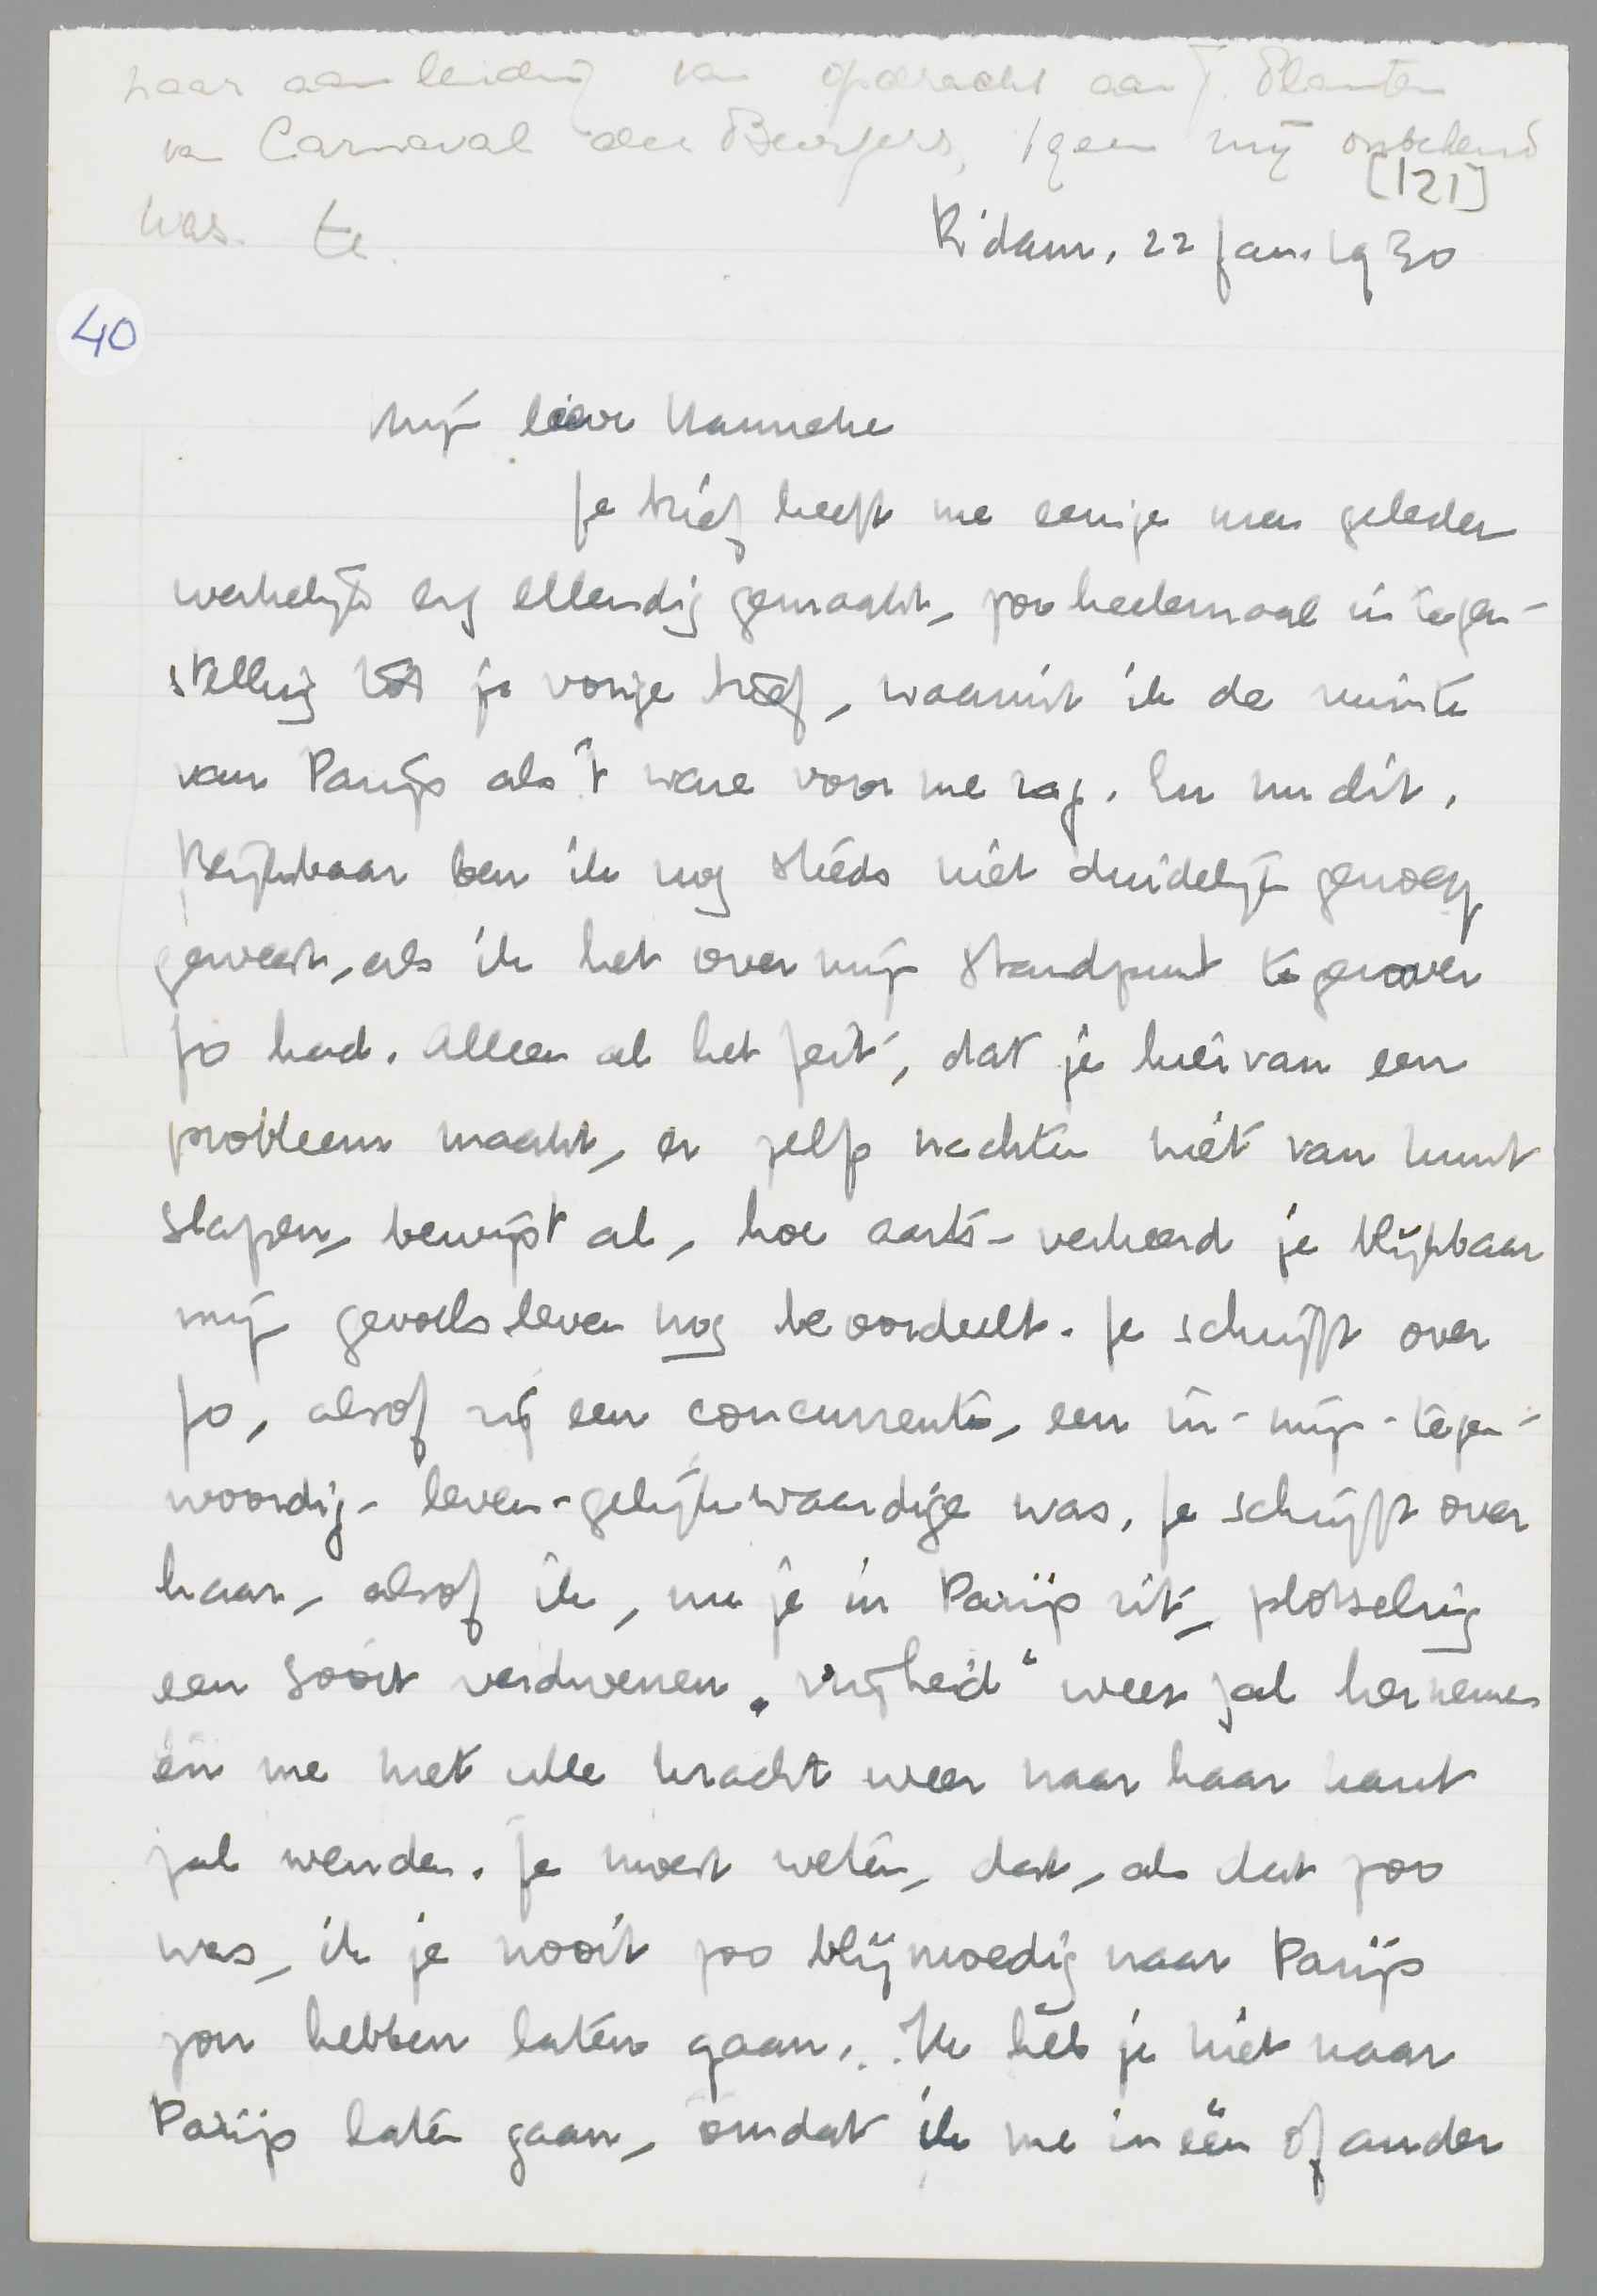 naar aanleiding van opdracht aan J. Planten
van Carnaval der Burgers, 'tgeen mij onbekend
[121]
was. te.
R'dam, 22 Jan. 1930
40
Mijn lieve Hanneke
Je brief heeft me eenige uren geleden
werkelijk erg ellendig gemaakt, zoo heelemaal in tegen-
stelling tot je vorige brief, waaruit ik de ruimte
van Parijs als 't ware voor me zag. En nu dit.
Blijkbaar ben ik nog steeds niet duidelijk genoeg
geweest, als ik het over mijn standpunt tegenover
Jo had. Alleen al het feit, dat je hiervan een
probleem maakt, er zelfs nachten niet van kunt
slapen, bewijst al, hoe aarts-verkeerd je blijkbaar
mijn gevoelsleven nog beoordeelt. Je schrijft over
Jo, alsof zij een concurrente, een in-mijn-tegen-
woordig-leven-gelijkwaardige was. Je schrijft over
haar, alsof ik, nu je in Parijs zit, plotseling
een soort verdwenen „vrijheid" weer zal hernemen
en me met alle kracht weer naar haar kant
zal wenden. Je moest weten, dat, als dat zoo
was, ik je nooit zoo blijmoedig naar Parijs
zou hebben laten gaan. Ik heb je niet naar
Parijs laten gaan, omdat ik me in één of ander